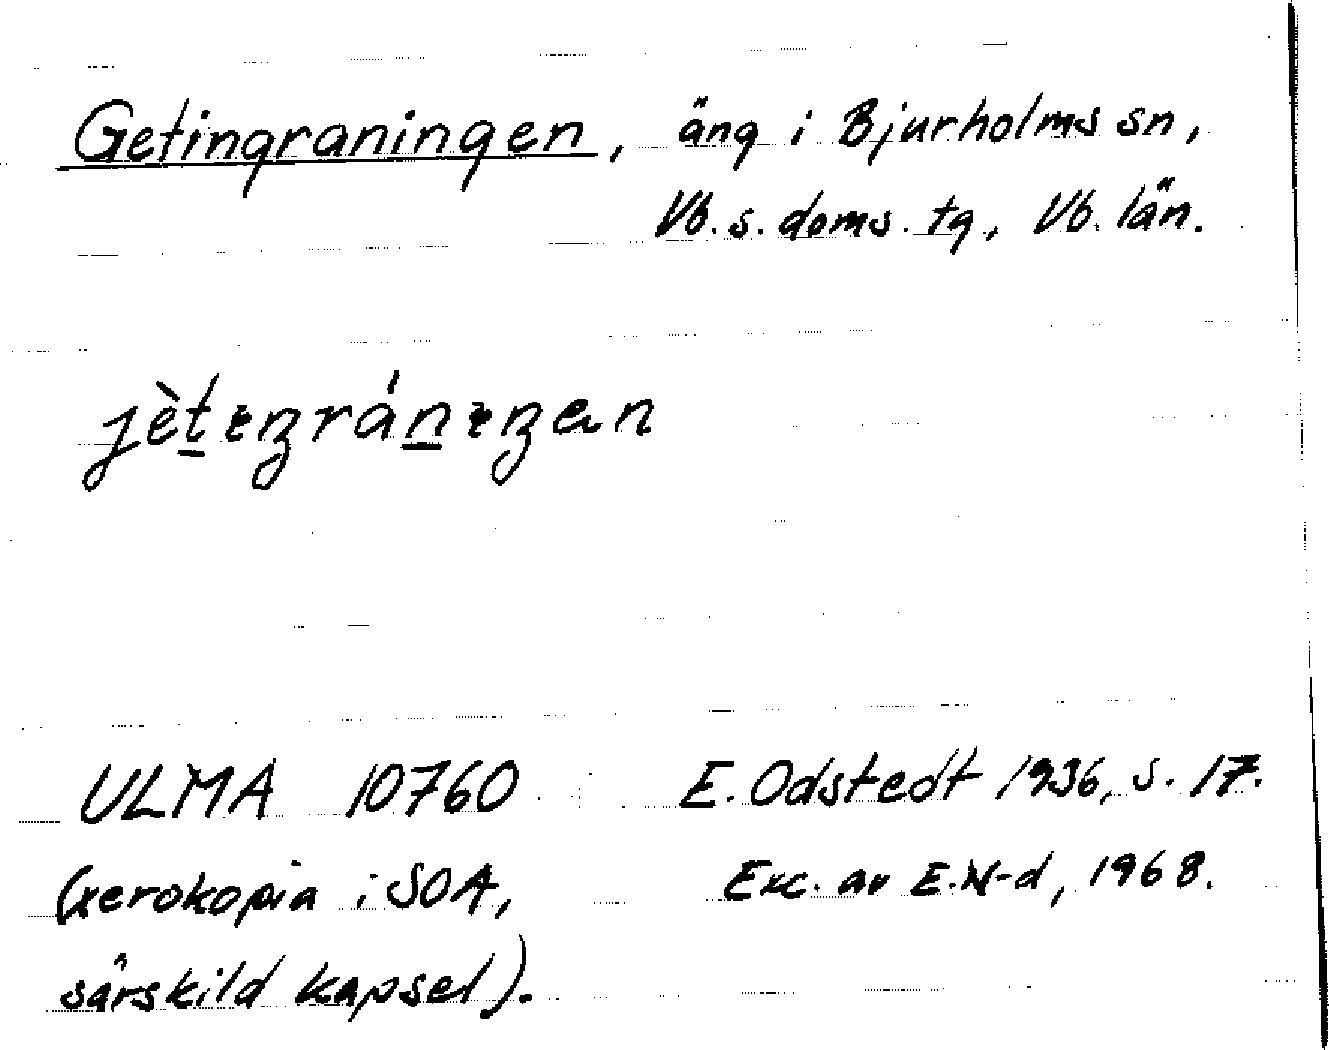 Getingraningen, äng i Bjurholms sn,
Vb. s. doms. tg, Vb. län.
jètɪŋránɪŋen
ULMA 10760 E. Odstedt 1936, s. 17.
(xerokopia i SOA, Exc. av E.N-d, 1968.
särskild kapsel).